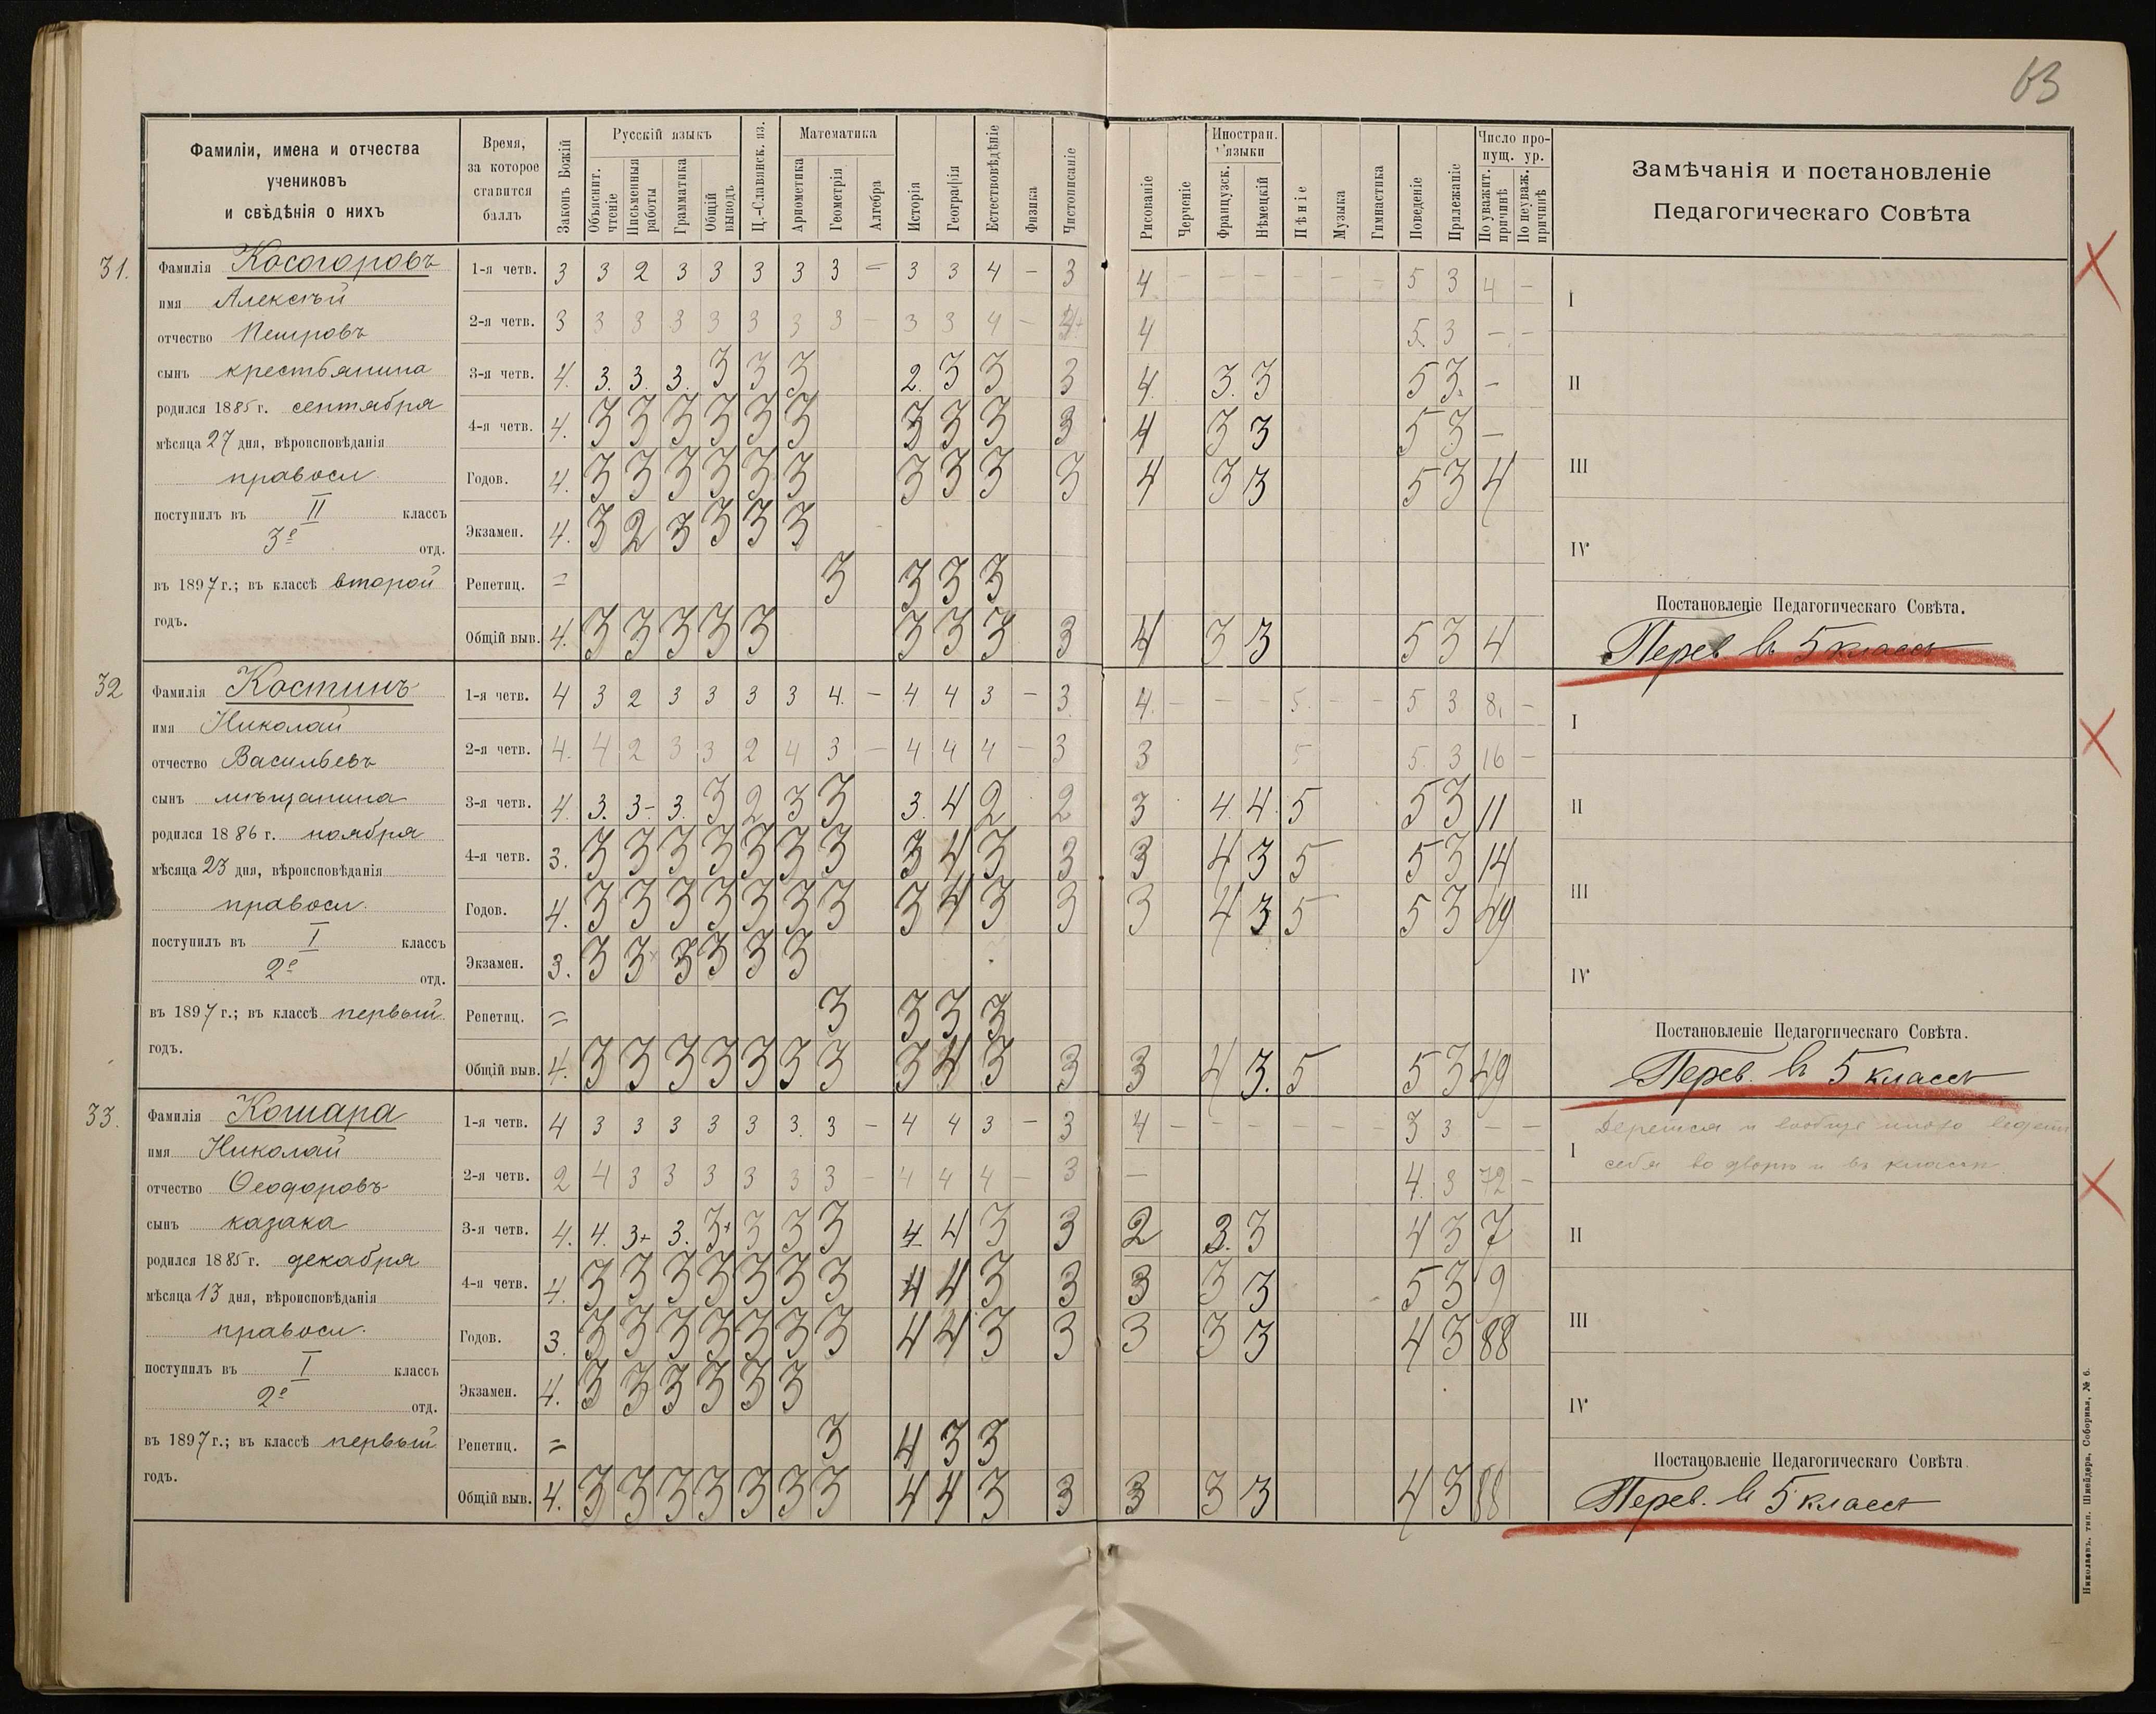 63
Фамиліи, имена и отчества
учениковъ
и свѣдѣнія о нихъ
Время,
за которое
ставится
баллъ
Законъ Божій
Русскій языкъ
Объяснит.
чтеніе
Письменныя
работы
Грамматика
Общій
выводъ
Ц.-Славянск. яз.
Математика
Арифметика
Геометрія
Алгебра
Исторія
Географія
Естествовѣдѣніе
Физика
Чистописаніе
Рисованіе
Черченіе
Иностран.
языки
Французск.
Нѣмецкій
Пѣніе
Музыка
Гимнастика
Поведеніе
Прилежаніе
Число про-
пущ. ур.
По уважит.
причинѣ
По неуваж.
причинѣ
Замѣчанія и постановленіе
Педагогическаго Совѣта
31.
Фамилія Косогоровъ
имя Алексѣй
отчество Петровъ
сынъ крестьянина
родился 1885 г. сентября
мѣсяца 27 дня, вѣроисповѣданія
правосл.
поступилъ въ II классъ
3е отд.
въ 1897 г.; въ классѣ второй
годъ.
1-я четв. 3 3 2 3 3 3 3 3 = 3 3 4 – 3 4 – – – – – – 5 3 4 –
2-я четв. 3 3 3 3 3 3 3 3 – 3 3 4 – 4 5. 3 – –
3-я четв. 4. 3. 3. 3. 3 3 3 2. 3 3 3 4. 3. 3 5 3. –
4-я четв. 4. 3 3 3 3 3 3 3 3 3 3 4 3 3 5 3 –
Годов. 4. 3 3 3 3 3 3 3 3 3 3 4 3 3 5 3 4
Экзамен. 4. 3 2 3 3 3 3
Репетиц. = 3 3 3 3
Общій выв. 4. 3 3 3 3 3 3 3 3 3 4 3 3 5 3 4
I
II
III
IV
Постановленіе Педагогическаго Совѣта.
Перев въ 5 классъ
32
Фамилія Костинъ
имя Николай
отчество Васильевъ
сынъ мѣщанина
родился 1886 г. ноября
мѣсяца 23 дня, вѣроисповѣданія
правосл.
поступилъ въ I классъ
2е отд.
въ 1897 г.; въ классѣ первый
годъ.
1-я четв. 4 3 2 3 3 3 3 4. – 4 4 3 – 3 4. – – – 5. – – 5 3 8. –
2-я четв. 4. 4 2 3 3 2 4 3 – 4 4 4 – 3 3 5 5. 3 16 –
3-я четв. 4. 3. 3– 3. 3 2 3 3 3. 4 2 2 3 4. 4. 5 5 3 11
4-я четв. 3. 3 3 3 3 3 3 3 3 4 3 3 3 4 3 5 5 3 14
Годов. 4. 3 3 3 3 3 3 3 3 4 3 3 3 4 3 5 5 3 49
Экзамен. 3. 3 3 3 3 3 3
Репетиц. = 3 3 3 3
Общій выв. 4. 3 3 3 3 3 3 3 3 4 3 3 3 4 3. 5 5 3 49
I
II
III
IV
Постановленіе Педагогическаго Совѣта.
Перев. въ 5 классъ
33.
Фамилія Кошара
имя Николай
отчество Ѳеодоровъ
сынъ казака
родился 1885 г. декабря
мѣсяца 13 дня, вѣроисповѣданія
правосл.
поступилъ въ I классъ
2е отд.
въ 1897 г.; въ классѣ первый
годъ.
1-я четв. 4 3 3 3 3 3 3. 3 – 4 4 3 – 3 4 – – – – – – 3 3 – –
2-я четв. 2 4 3 3 3 3 3 3 – 4 4 4 – 3 – 4. 3 72 –
3-я четв. 4. 4. 3+ 3. 3+ 3 3 3 4. 4 3 3 2 3. 3 4 3 7
4-я четв. 4. 3 3 3 3 3 3 3 4 4 3 3 3 3 3 5 3 9
Годов. 3. 3 3 3 3 3 3 3 4 4 3 3 3 3 3 4 3 88
Экзамен. 4. 3 3 3 3 3 3
Репетиц. = 3 4 3 3
Общій выв. 4. 3 3 3 3 3 3 3 4 4 3 3 3 3 3 4 3 88
Дерется и вообще ведетъ
I
себя во дворѣ и въ классѣ
II
III
IV
Постановленіе Педагогическаго Совѣта.
Перев. въ 5 классъ
Николаевъ, тип. Шнейдера, Соборная, № 6.